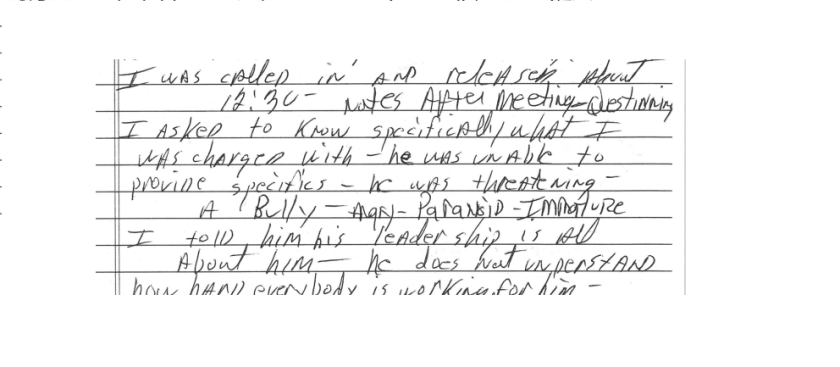 I was called in and released about
12:30 - Notes After Meeting - Questioning
I Asked to Know specifically what I
was charged with - he was unable to
provide specifics - he was threatening -
A Bully - Angry - Paranoid - Immature
I told him his leadership is all
About him - he does not understand
how hard everybody is working for him -